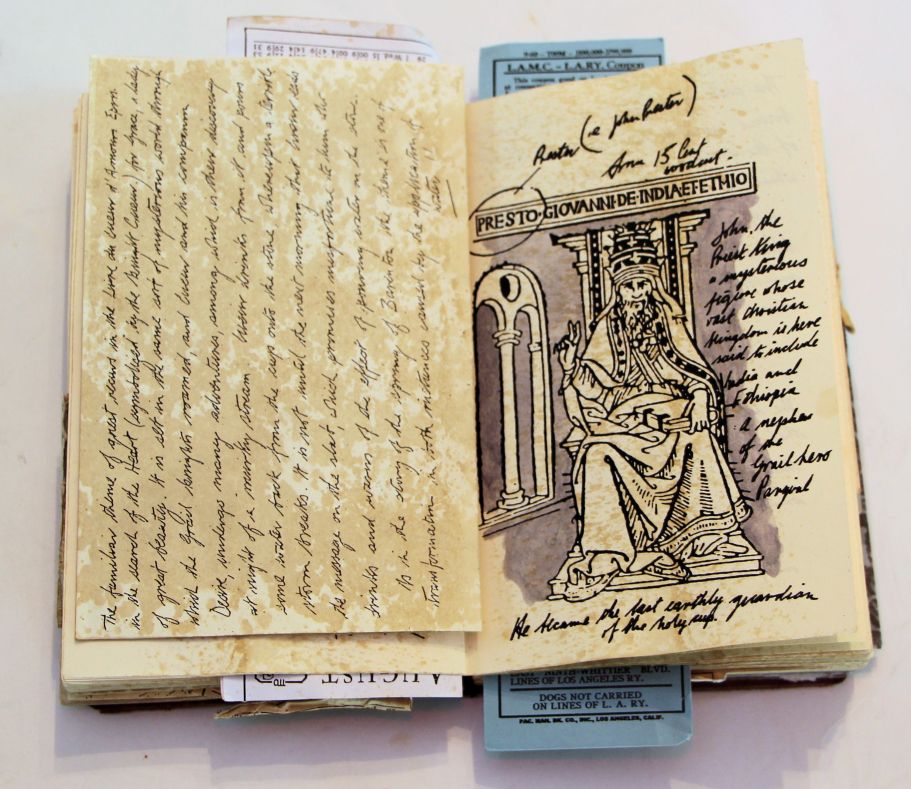 The familiar theme of quest recurs in the Livre du Cueur d'Amours Espris
in the search of the Heart (symbolised by the knight Cueur) for Grace, a lady
of great beauty. It is set in the same sort of mysterious world through
which the Grail knights roamed, and Cueur and his companion
Desire, undergo many adventures, among which is their discovery
at night of a murky stream. Cueur drinks from it and pours
some water back from the cup onto the stone whereupon a terrible
storm breaks. It is not until the next morning that Cueur sees
the message on the slab which promises misfortune to him who
drinks and warns of the effect of pouring water on the stone.
As in the story of the spring of Barenton the theme is one of
transformation, in both instances caused by the application of
water!
AUGUST
L.A.M.C. - L.A.RY. Coupon
Prester (ie John Prester)
from 15 Cent
woodcut.
PRESTO·GIOVANNI·DE·INDIA·ET·ETHIO
John, the
Priest King
a mysterious
figure whose
vast Christian
kingdom is here
said to include
India and
Ethiopia
a nephew
of the
Grail hero
Parzival
He became the last earthly guardian
of the holy cup.
NINTH-WHITTIER BLVD.
LINES OF LOS ANGELES RY.
DOGS NOT CARRIED
ON LINES OF L. A. RY.
PAC. MAN. BK. CO., INC., LOS ANGELES, CALIF.